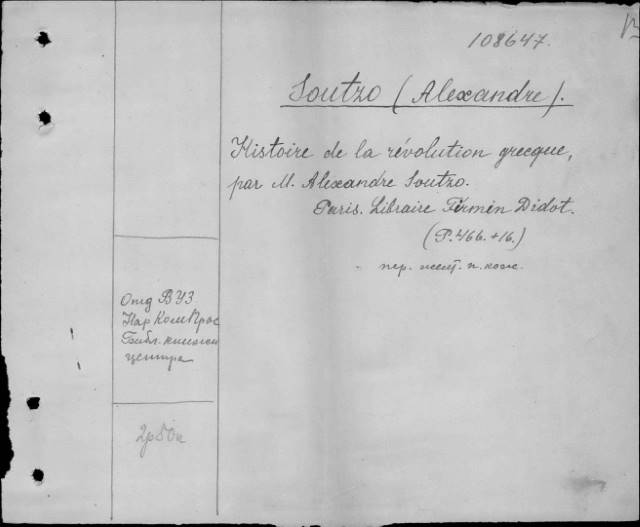 108647.
Soutzo (Alexandre).
Histoire de la révolution grecque,
par M. Alexandre Soutzo.
Paris. Libraire Firmin Didot.
(P. 466. + 16.)
пер.
Отд ВУЗ
Нар Ком Прос
Библ.
центра
2р50к